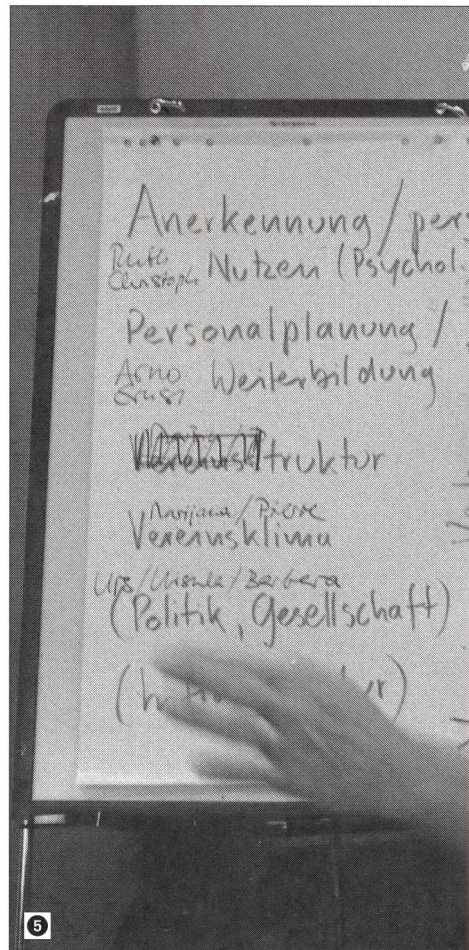 Anerkennung / pers
Ruth
Christoph Nutzen (Psychol.
Personalplanung /
Arno
Ernst Weiterbildung
struktur
Marijana / Pierre
Vereinsklima
Urs / Ursula / Barbara
(Politik, Gesellschaft)
5